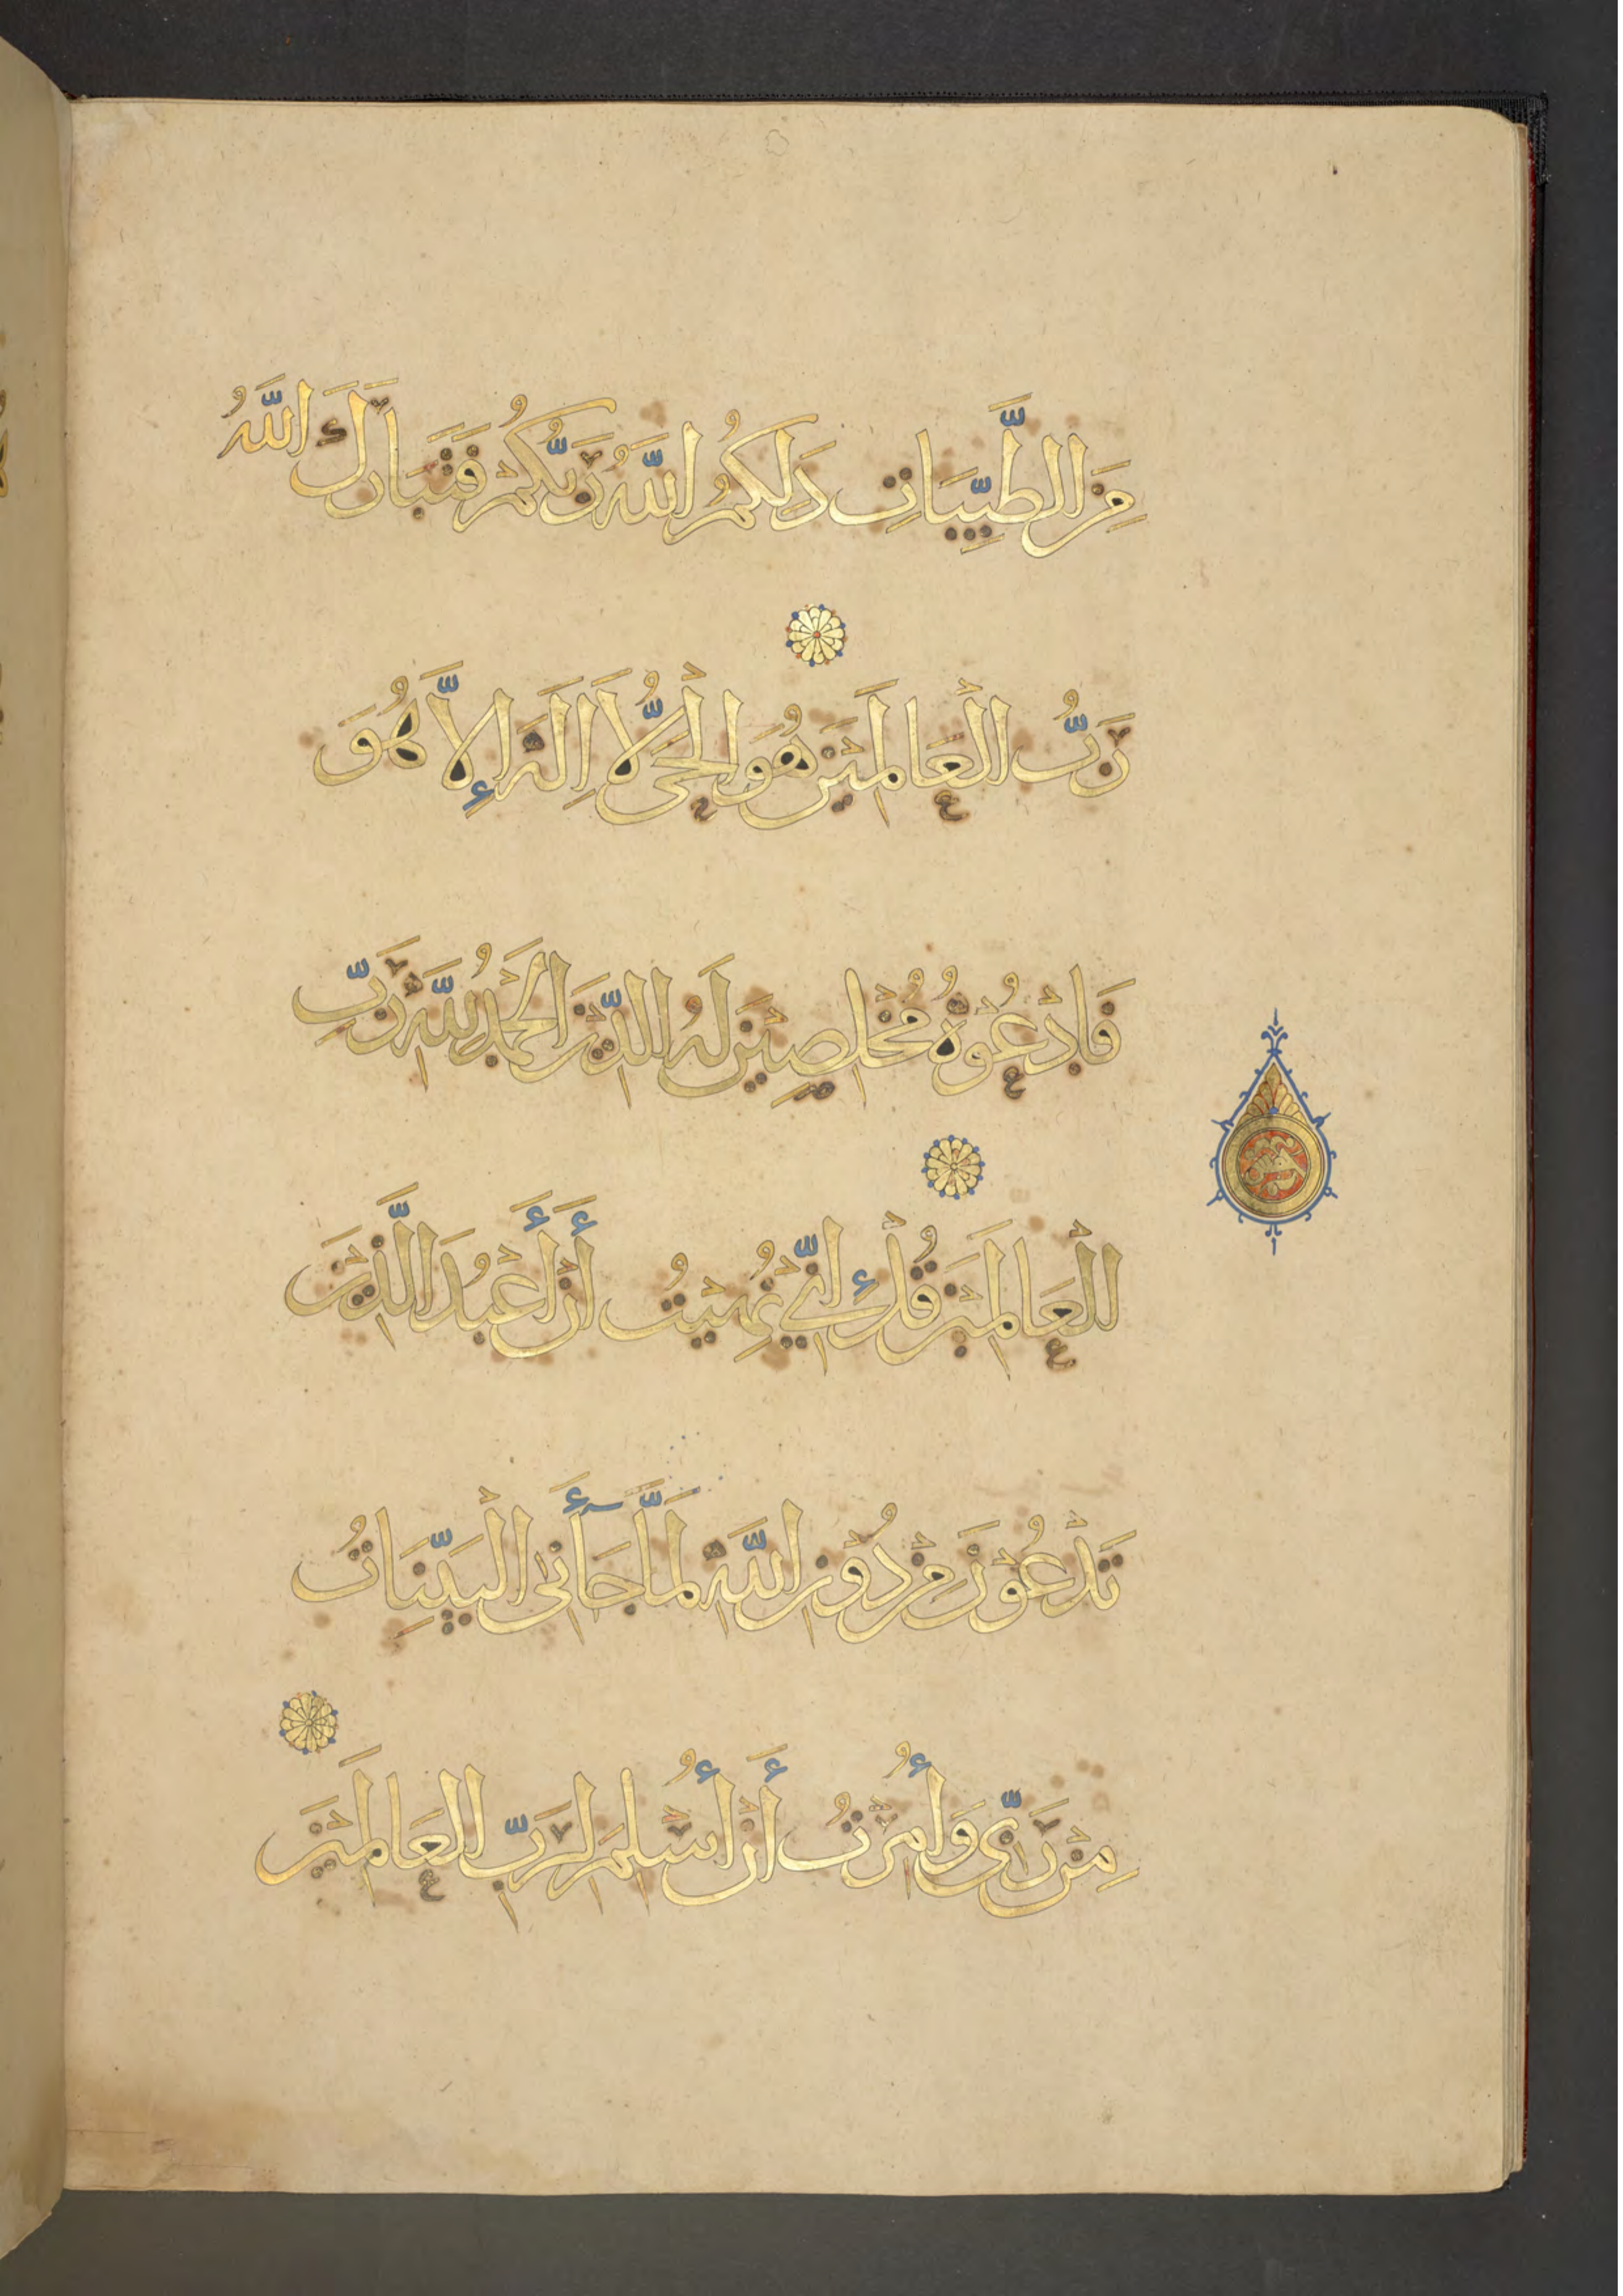 مِنَ الطَّيِّبَاتِ ذَلِكُمُ اللَّهُ رَبُّكُمْ فَتَبَارَكَ اللَّهُ
رَبُّ الْعَالَمِيْنَ هُوَ الْحَىُّ لَا اِلَهَ إِلاَّ هُوَ
فَادْعُوْهُ مُخْلِصِيْنَ لَهُ الدِّيْنَ الْحَمْدُ لِلَّهِ رَبِّ
الْعَالَمِيْنَ قُلْ إِنِّيْ نُهِيْتُ أَنْ أَعْبُدَ الَّذِيْنَ
تَدْعُوْنَ مِنْ دُوْنِ اللَّهِ لَمَّا جَآءَنِىَ الْبَيِّنَاتُ
مِنْ رَبِّى وَأُمِرْتُ أَنْ أُسْلِمَ لِرَبِّ الْعَالَمِيْنَ